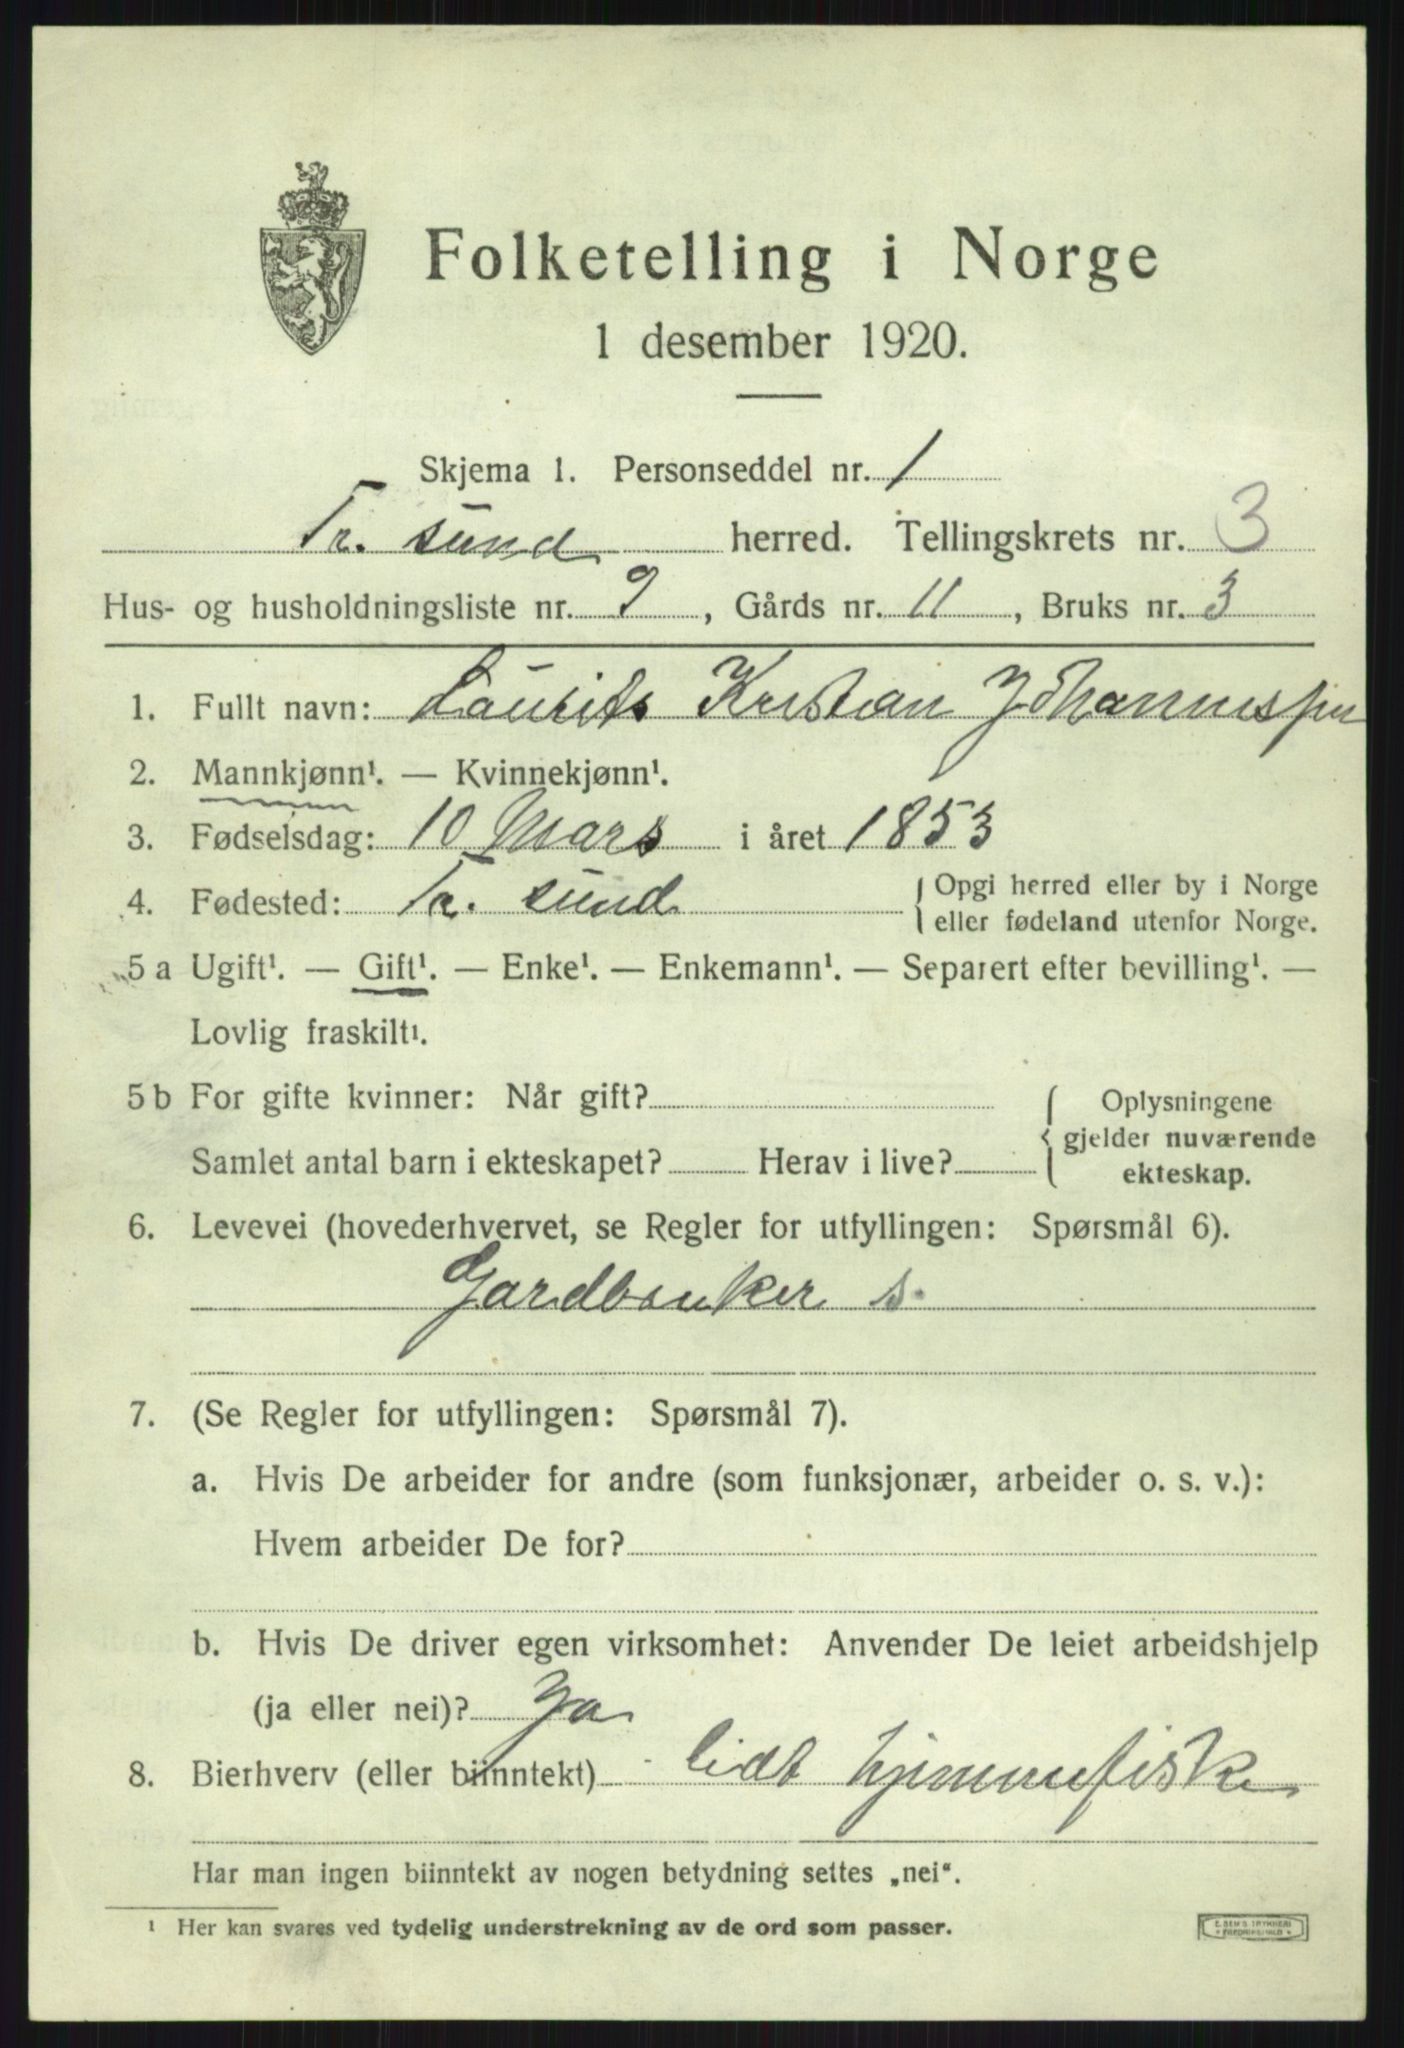 Folketelling i Norge
1 desember 1920.
Skjema 1. Personseddel nr. 1
Tr. sund herred. Tellingskrets nr. 3
Hus- og husholdningsliste nr. 9, Gårds nr. 11, Bruks nr. 3
1. Fullt navn: Laurits Kristian Johannessen
2. Mannkjønn¹. — Kvinnekjønn¹.
3. Fødselsdag: 10 Mars i året 1853
4. Fødested: Tr. sund { Opgi herred eller by i Norge
eller fødeland utenfor Norge.
5 a Ugift¹. — Gift¹. — Enke¹. — Enkemann¹. — Separert efter bevilling¹. —
Lovlig fraskilt¹.
5 b For gifte kvinner: Når gift? { Oplysningene
gjelder nuværende
Samlet antal barn i ekteskapet? Herav i live? ekteskap.
6. Levevei (hovederhvervet, se Regler for utfyllingen: Spørsmål 6).
Gardbruker s.
7. (Se Regler for utfyllingen: Spørsmål 7).
a. Hvis De arbeider for andre (som funksjonær, arbeider o. s. v.):
Hvem arbeider De for?
b. Hvis De driver egen virksomhet: Anvender De leiet arbeidshjelp
(ja eller nei)? Ja
8. Bierhverv (eller biinntekt) lidt hjemmefiske
Har man ingen biinntekt av nogen betydning settes „nei“.
¹ Her kan svares ved tydelig understrekning av de ord som passer.
E. SEM'S TRYKKERI
FREDRIKSHALD